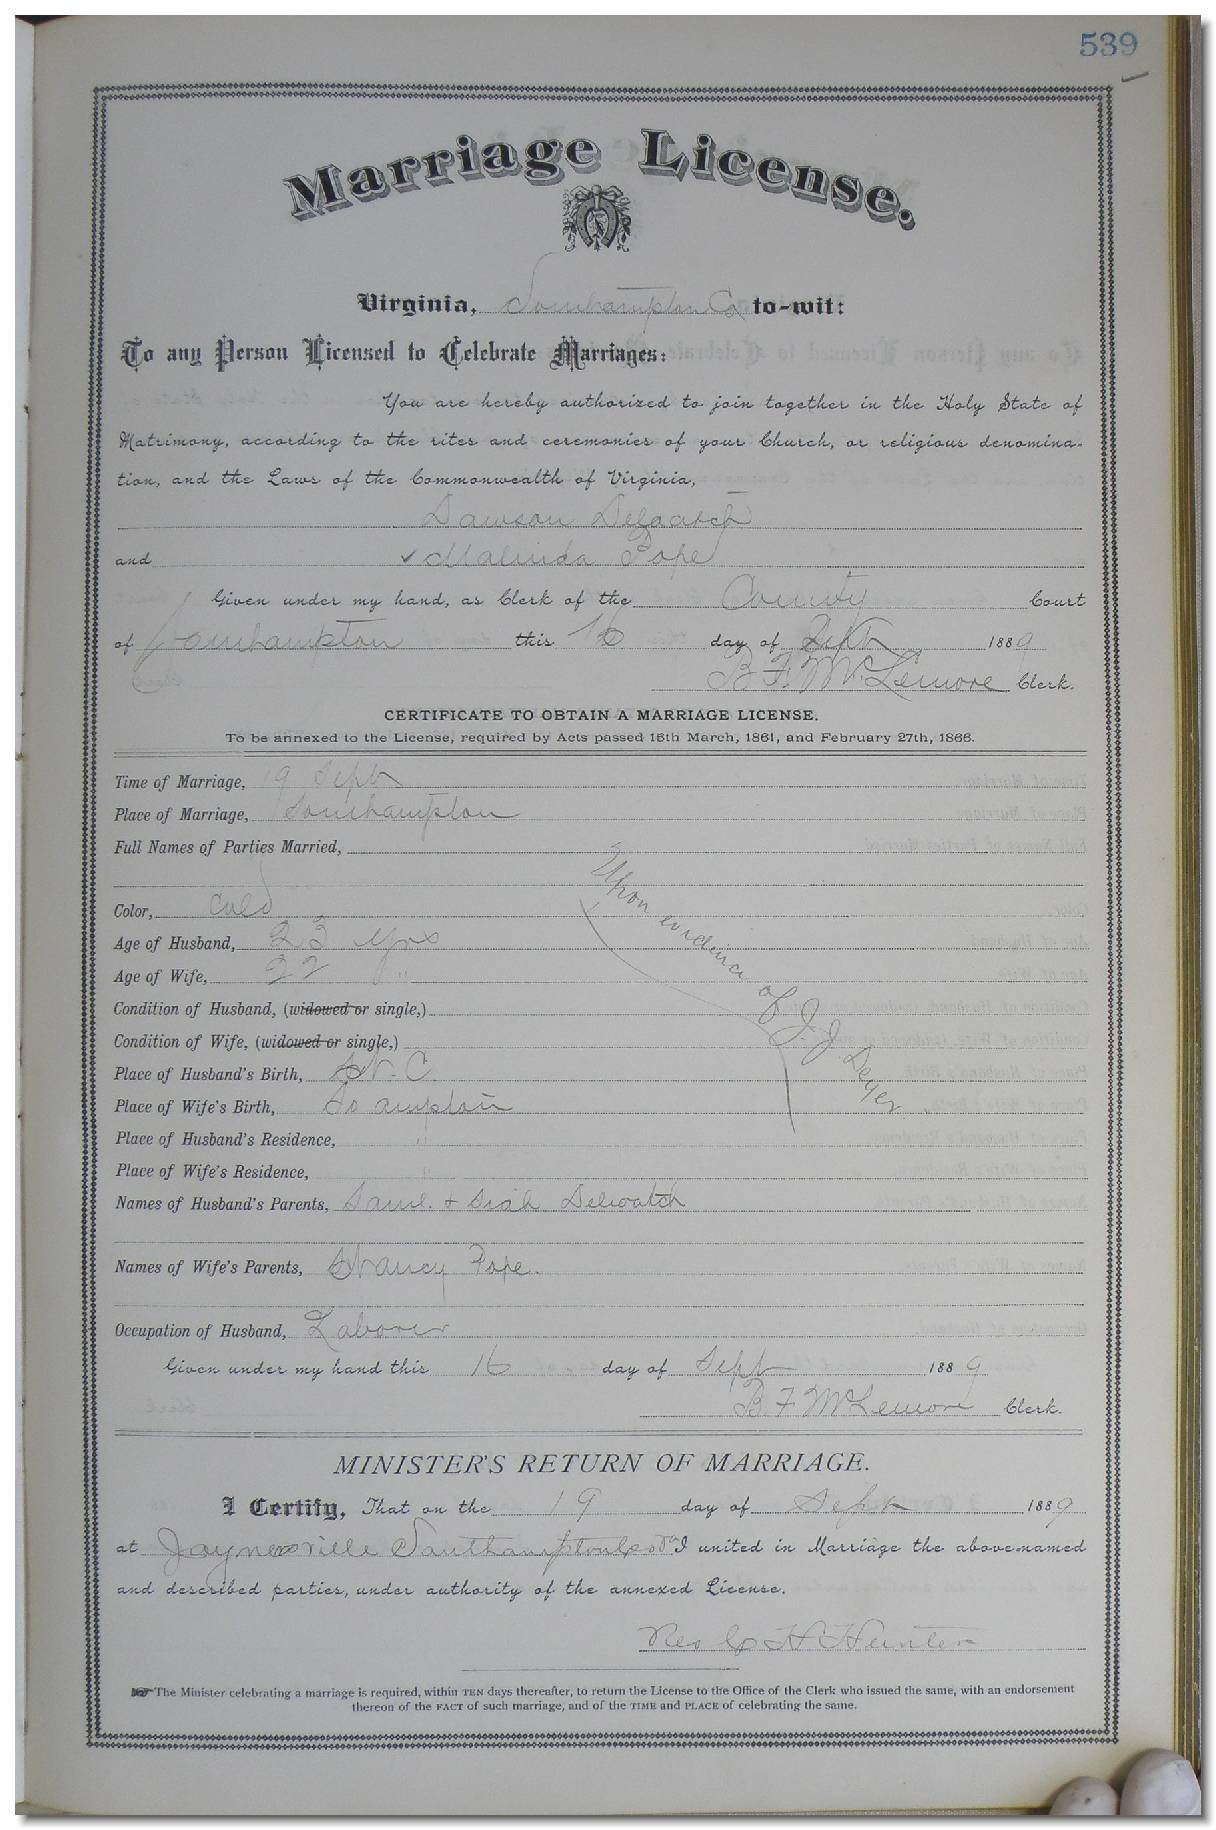 539
Marriage License.
Virginia, Southampton Co to-wit:
To any Person Licensed to Celebrate Marriages:
You are hereby authorized to join together in the Holy State of
Matrimony, according to the rites and ceremonies of your Church, or religious denomina-
tion, and the Laws of the Commonwealth of Virginia,
Dawson
and Malinda Pope
Given under my hand, as Clerk of the County Court
of Southampton this 16 day of Sept 1889
B. F. McLemore Clerk.
CERTIFICATE TO OBTAIN A MARRIAGE LICENSE.
To be annexed to the License, required by Acts passed 15th March, 1861, and February 27th, 1866.
Time of Marriage, 19 Sept
Place of Marriage, Southampton
Full Names of Parties Married,
Color, Cold
Age of Husband, 23 yrs
Age of Wife, 22 "
Condition of Husband, (widowed or single,)
Condition of Wife, (widowed or single,)
Place of Husband's Birth, N. C.
Place of Wife's Birth, So ampton
Place of Husband's Residence, "
Place of Wife's Residence, "
Upon evidence of J. J. Deyer
Names of Husband's Parents, Saml. + Delvatch
Names of Wife's Parents, Nancy Pope.
Occupation of Husband, Laborer
Given under my hand this 16 day of Sept 1889
B. F. McLemore Clerk.
MINISTER'S RETURN OF MARRIAGE.
I Certify, That on the 19 day of Sept 1889
at Joynerville Southampton Co Va I united in Marriage the above-named
and described parties, under authority of the annexed License.
Rev C H Hunter
The Minister celebrating a marriage is required, within TEN days thereafter, to return the License to the Office of the Clerk who issued the same, with an endorsement
thereon of the FACT of such marriage, and of the TIME and PLACE of celebrating the same.